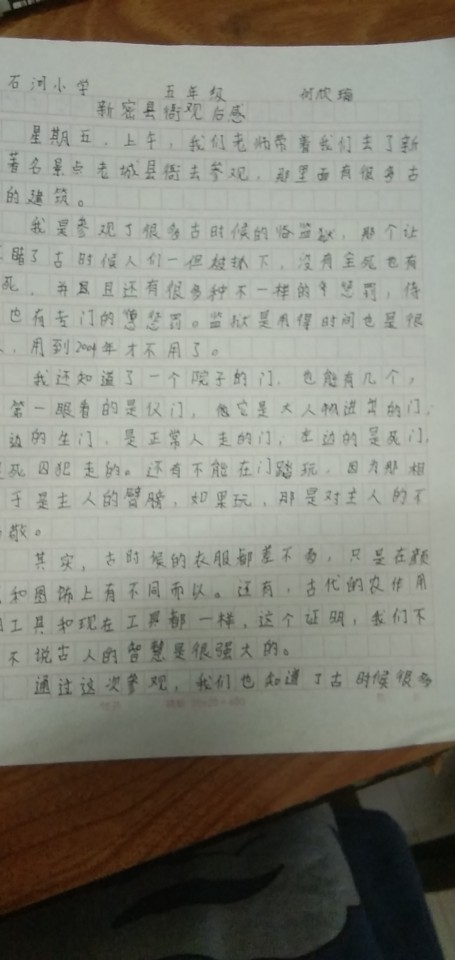 石河小学 五年级 何欣瑜
新密县衙观后感
星期五，上午，我们老师带着我们去了新
著名景点老城县衙去参观，那里面有很多古
的建筑。
我是参观了很多古时候的监狱，那个让
瞎了古时候人们一但被抓下，没有全死也有
死，并且且还有很多种不一样的惩罚，侍
也有专门的惩罚。监狱是用得时间也是很
，用到2004年才不用了。
我还知道了一个院子的门，也能有几个，
第一眼看的是仪门，它是大人物进出的门，
边的生门，是正常人走的门，右边的是死门，
死囚犯走的。还有不能在门踏玩，因为那相
于是主人的臂膀，如果玩，那是对主人的不
敬。
其实，古时候的衣服都差不多，只是在颜
和图饰上有不同而以。还有，古代的农作用
工具和现在工具都一样，这个证明，我们不
不说古人的智慧是很强大的。
通过这次参观，我们也知道了古时候很多